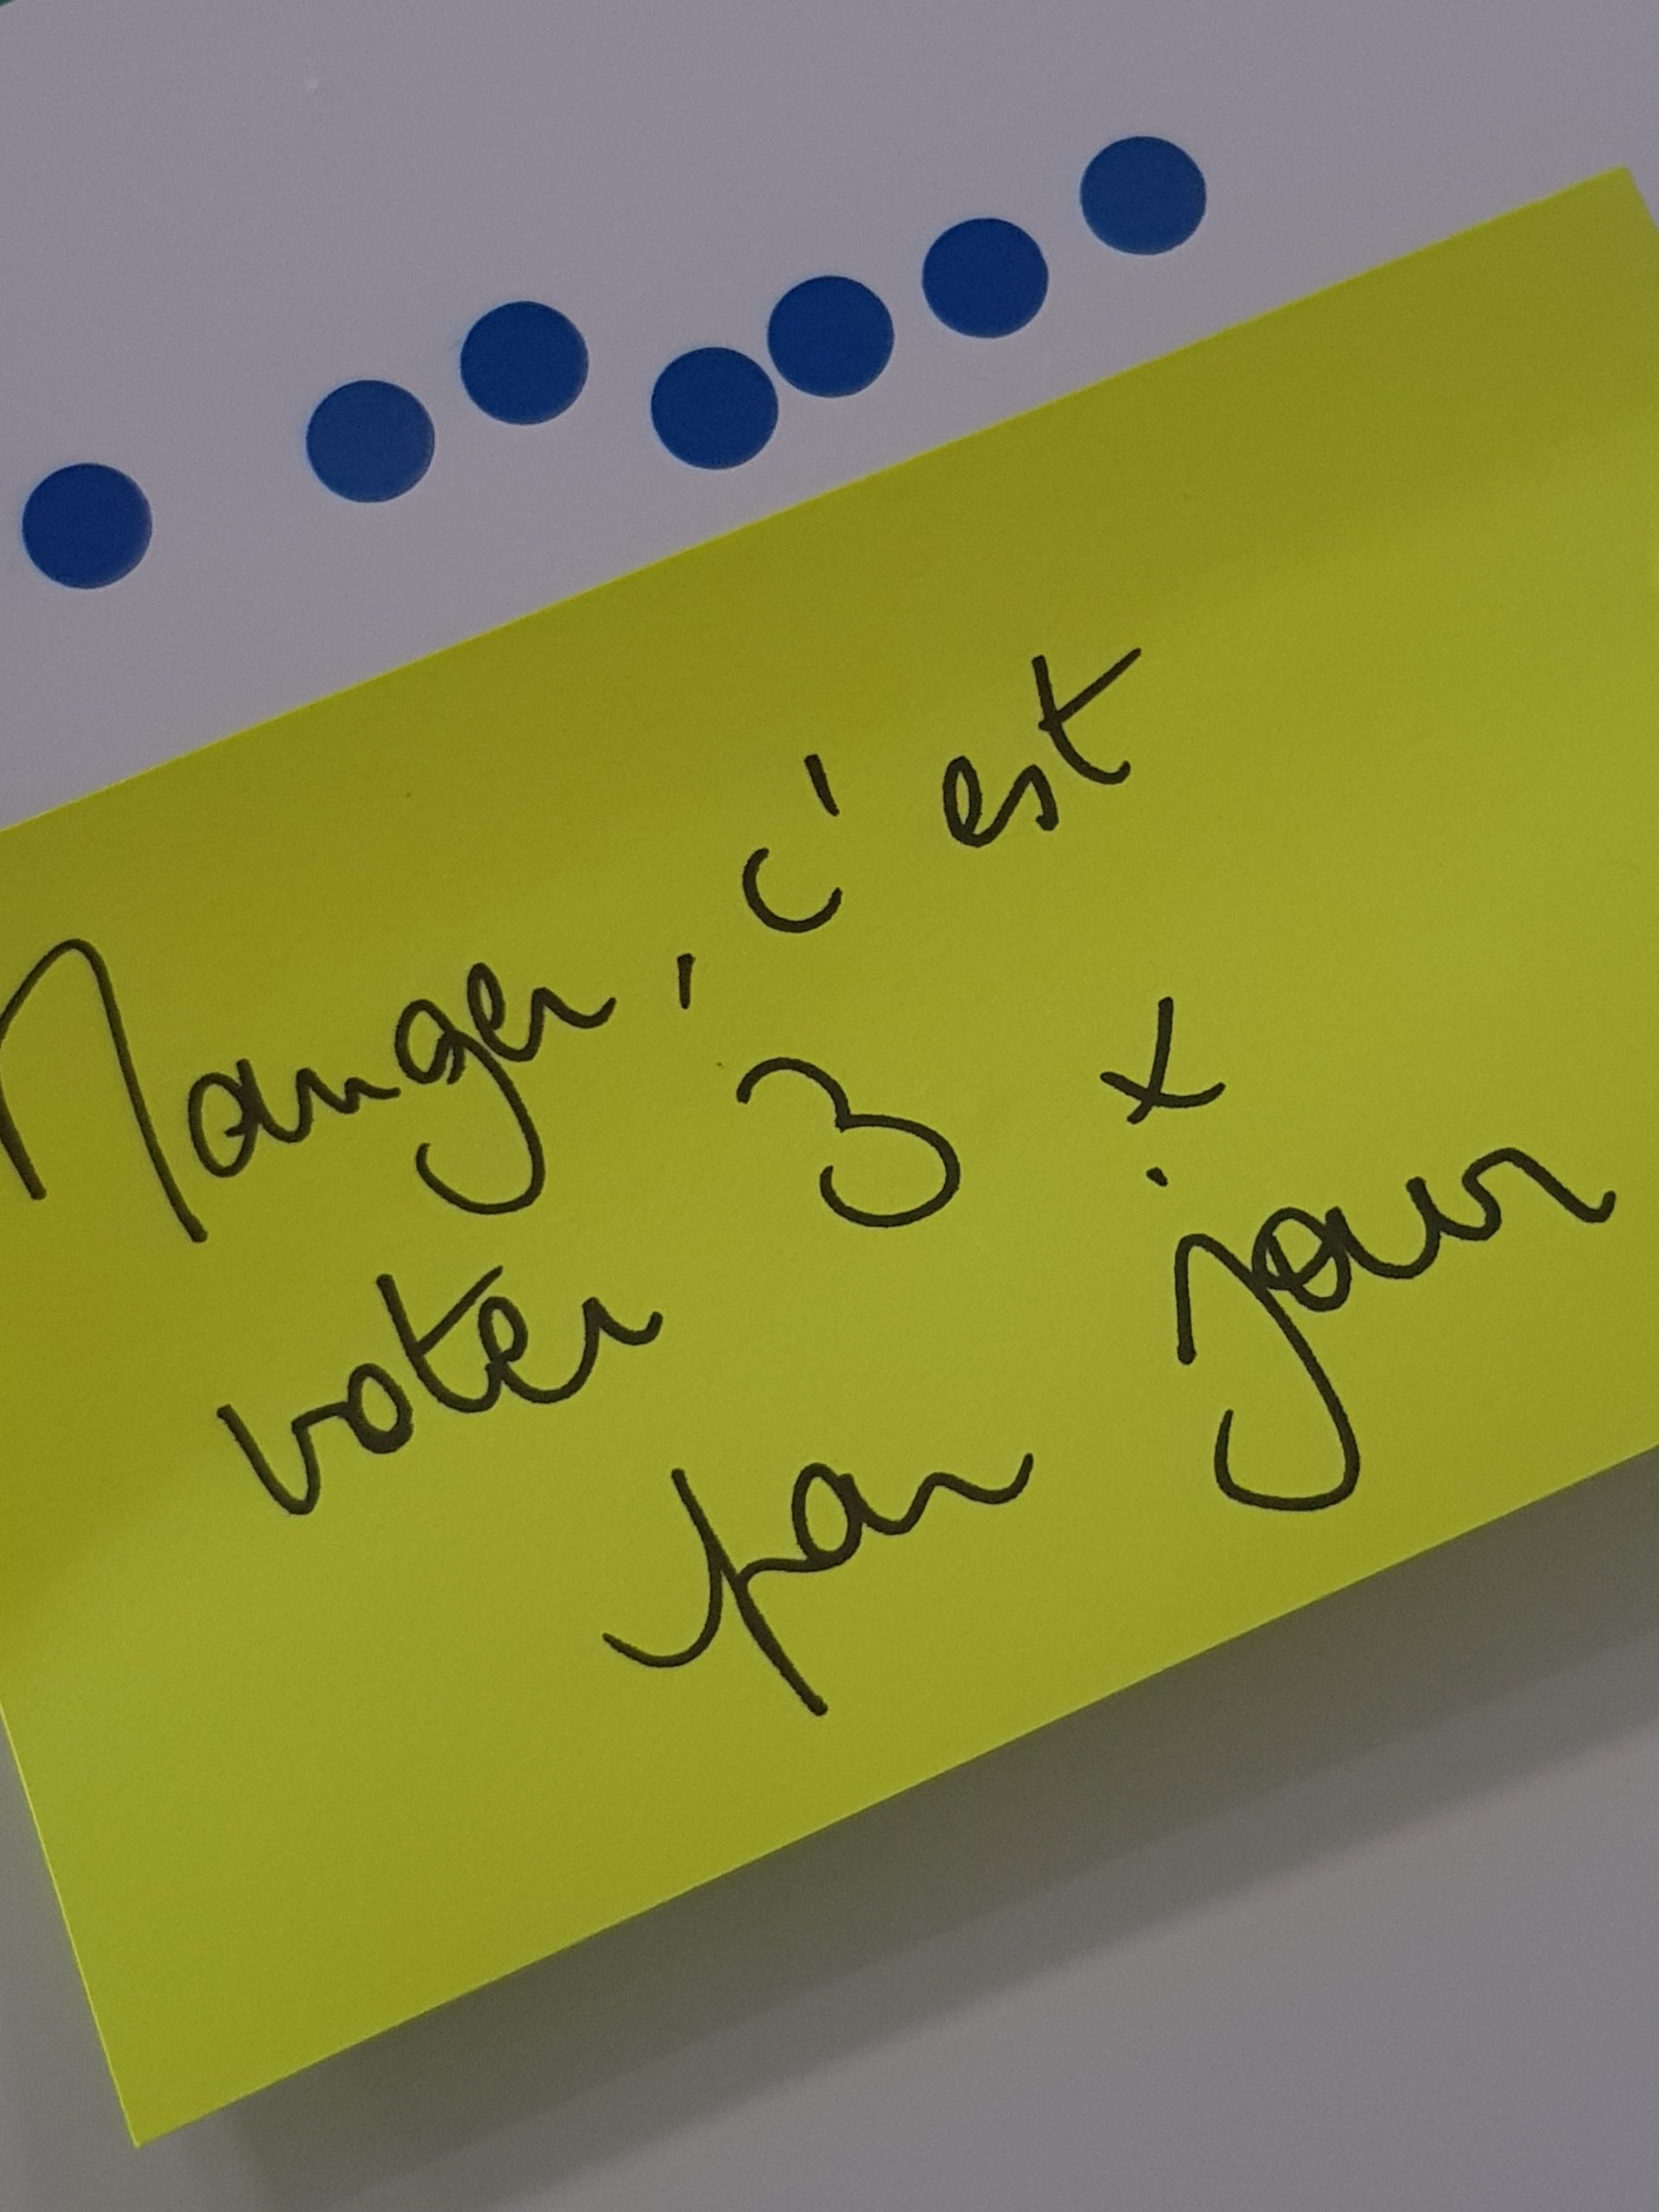 Manger, c'est
voter 3 x
par jour